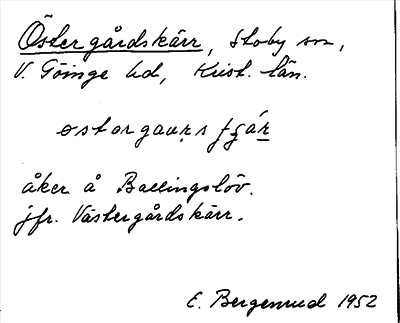 Östergårdskärr, Stoby sn,
V. Göinge hd, Krist. län.
åker å Ballingslöv.
jfr. Västergårdskärr.
E. Bergenrud 1952